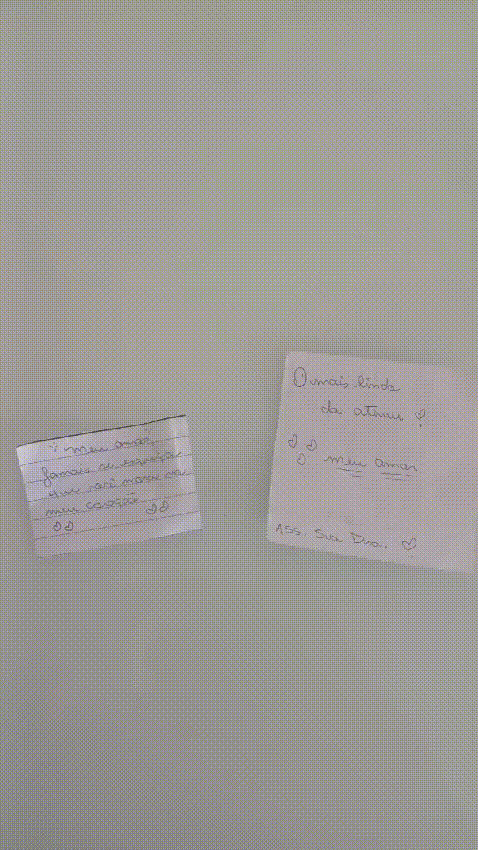 meu amor,
Jamais se esqueça
que você mora em
meu coração
O mais lindo
da atenu
meu amor
Ass. Sua Dua.